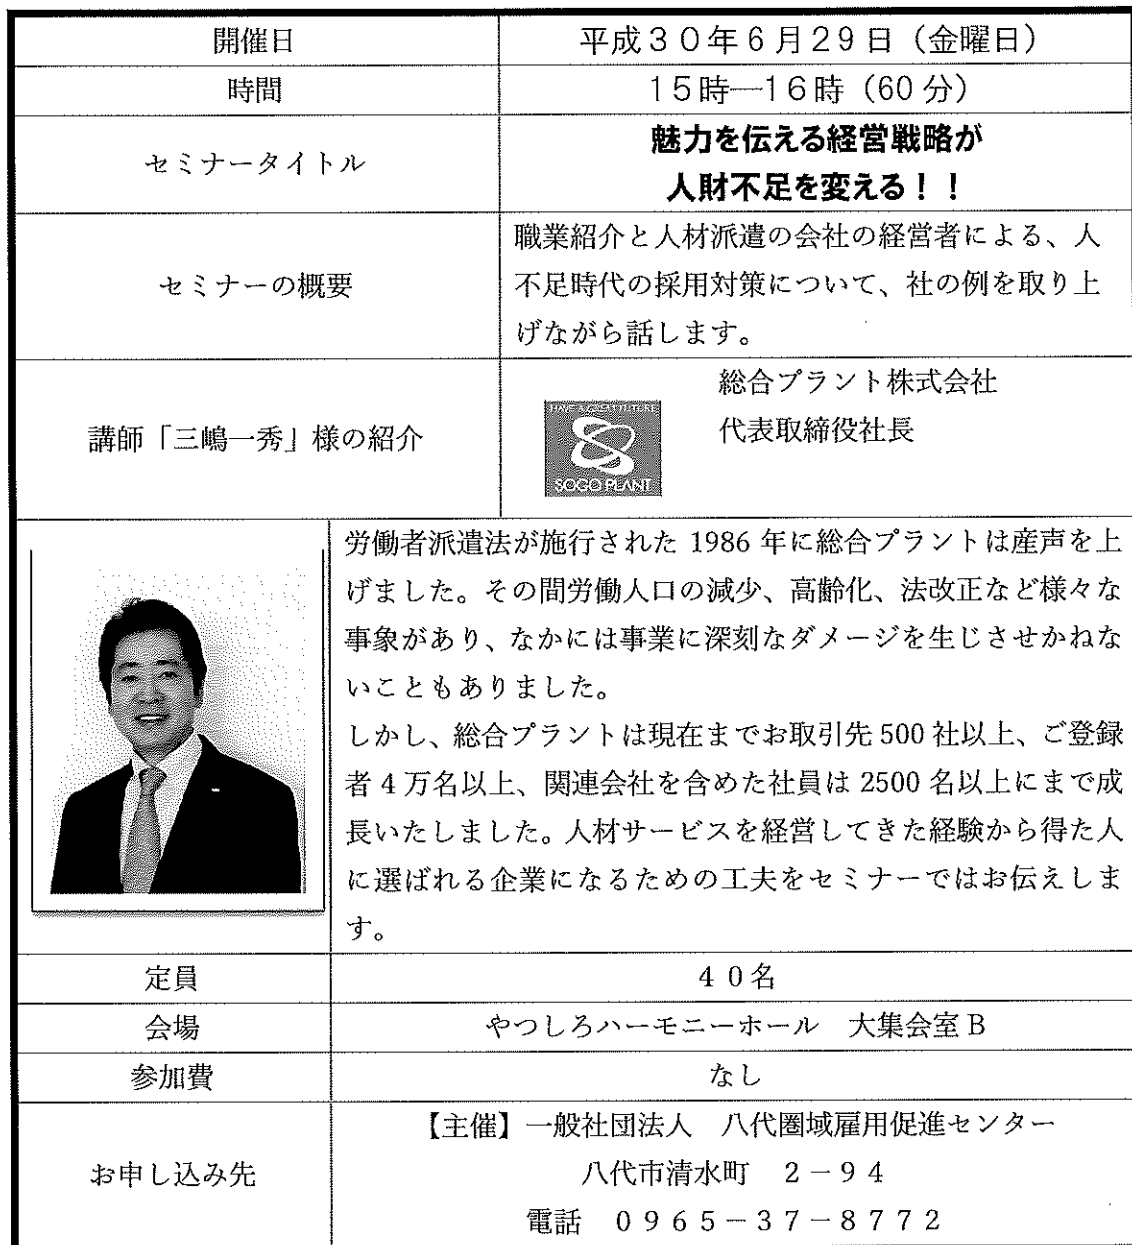 開催日 平成30年6月29日(金曜日)
時間 15時―16時(60分)
セミナータイトル 魅力を伝える経営戦略が
人財不足を変える!!
セミナーの概要 職業紹介と人材派遣の会社の経営者による、人
不足時代の採用対策について、社の例を取り上
げながら話します。
講師「三嶋一秀」様の紹介
HAVE A GREAT FUTURE
SOGO PLANT
総合プラント株式会社
代表取締役社長
労働者派遣法が施行された 1986 年に総合プラントは産声を上
げました。その間労働人口の減少、高齢化、法改正など様々な
事象があり、なかには事業に深刻なダメージを生じさせかねな
いこともありました。
しかし、総合プラントは現在までお取引先 500 社以上、ご登録
者 4 万名以上、関連会社を含めた社員は 2500 名以上にまで成
長いたしました。人材サービスを経営してきた経験から得た人
に選ばれる企業になるための工夫をセミナーではお伝えしま
す。
定員 40名
会場 やつしろハーモニーホール 大集会室 B
参加費 なし
お申し込み先 【主催】一般社団法人 八代圏域雇用促進センター
八代市清水町 2-94
電話 0965-37-8772